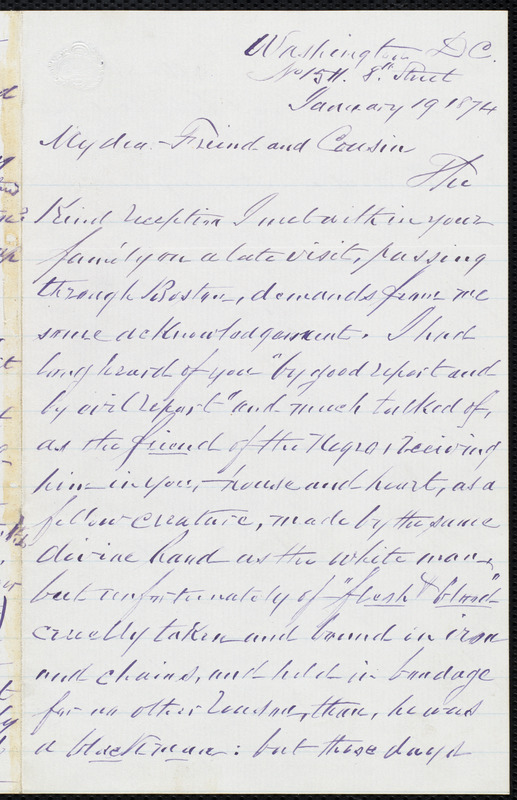 Washington D.C.
No 1511. 8th Street
January 19 1874
My dear Friend and Cousin
The
Kind reception I met with in your
family on a late visit, passing
through Boston, demands from me
some acknowledgement. I had
long heard of you "by good report and
by evil report" and much talked of,
as the friend of the Negro, receiving
him in your house and heart, as a
fellow creature, made by the same
divine hand as the white man,
but unfortunately of "flesh & blood"
cruelly taken and bound in iron
and chains, and held in bondage
for no other reason, than, he was
a black man: but those days